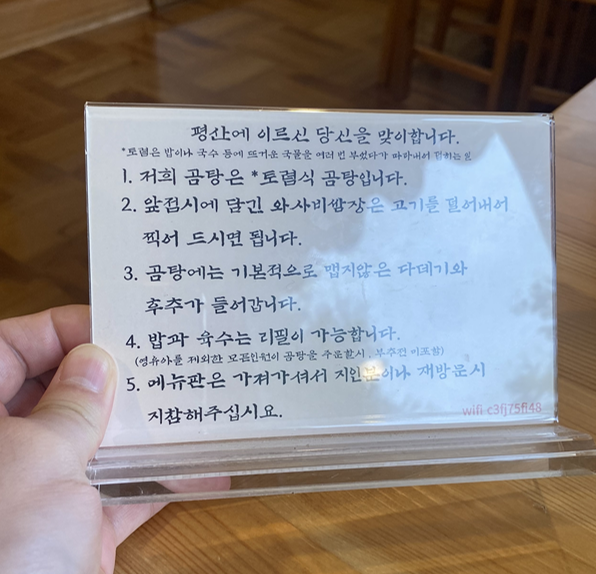 평산에 이르신 당신을 맞이합니다.
*토렴은 밥이나 국수 등에 뜨거운 국물을 여러 번 부었다가 따라내어 덥히는 일
1. 저희 곰탕은 *토렴식 곰탕입니다.
2. 앞접시에 담긴 와사비쌈장은 고기를 덜어내어
찍어 드시면 됩니다.
3. 곰탕에는 기본적으로 맵지않은 다데기와
후추가 들어갑니다.
4. 밥과 육수는 리필이 가능합니다.
(영유아를 제외한 모든인원이 곰탕을 주문할시, 부추전 미포함)
5. 메뉴판은 가져가셔서 지인분이나 재방문시
지참해주십시요.
wifi c3fj75fl48